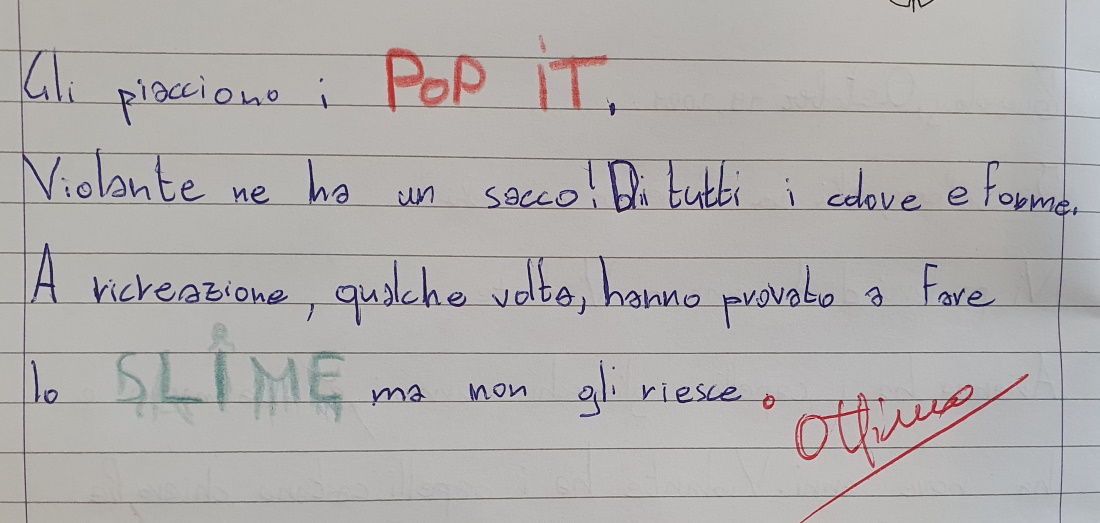 Gli piacciono i POP IT.
Violante ne ha un sacco! Di tutti i colove e forme.
A ricreazione, qualche volta, hanno provato a fare
lo SLIME ma non gli riesce.
Ottimo